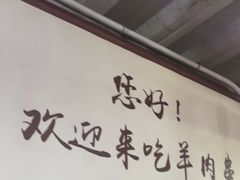 您好!
欢迎来吃羊肉串